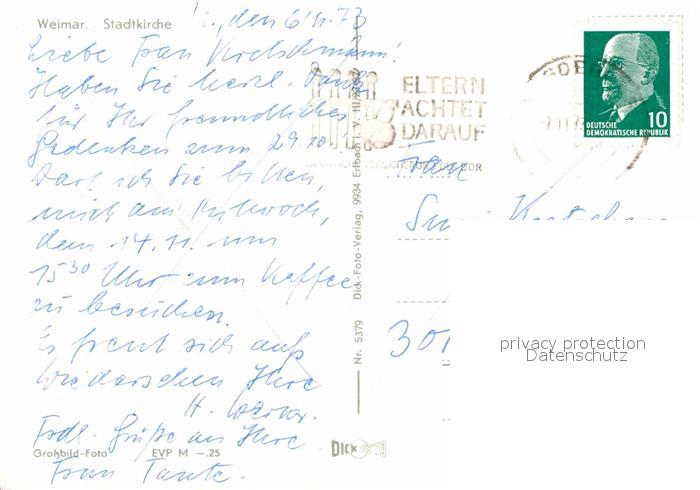 Weimar. Stadtkirche
den 6.11.73
Liebe Frau Kretschmann!
Haben Sie herzl. Dank
für Ihr freundliches
Gedenken zum 29.10.
Darf ich Sie bitten,
mich am Mittwoch,
dem 14.11. um
15³⁰ Uhr zum Kaffee
zu besuchen.
Es freut sich aufs
Wiedersehen Ihre
H.
Frdl. Grüße an Ihre
Frau Tante.
Großbild-Foto EVP M —.25
Nr. 5379 Dick-Foto-Verlag, 9934 Erlbach i. V.
DICK FOTO
ELTERN
ACHTET
DARAUF
DDR
10
DEUTSCHE
DEMOKRATISCHE REPUBLIK
Frau
301
privacy protection
Datenschutz